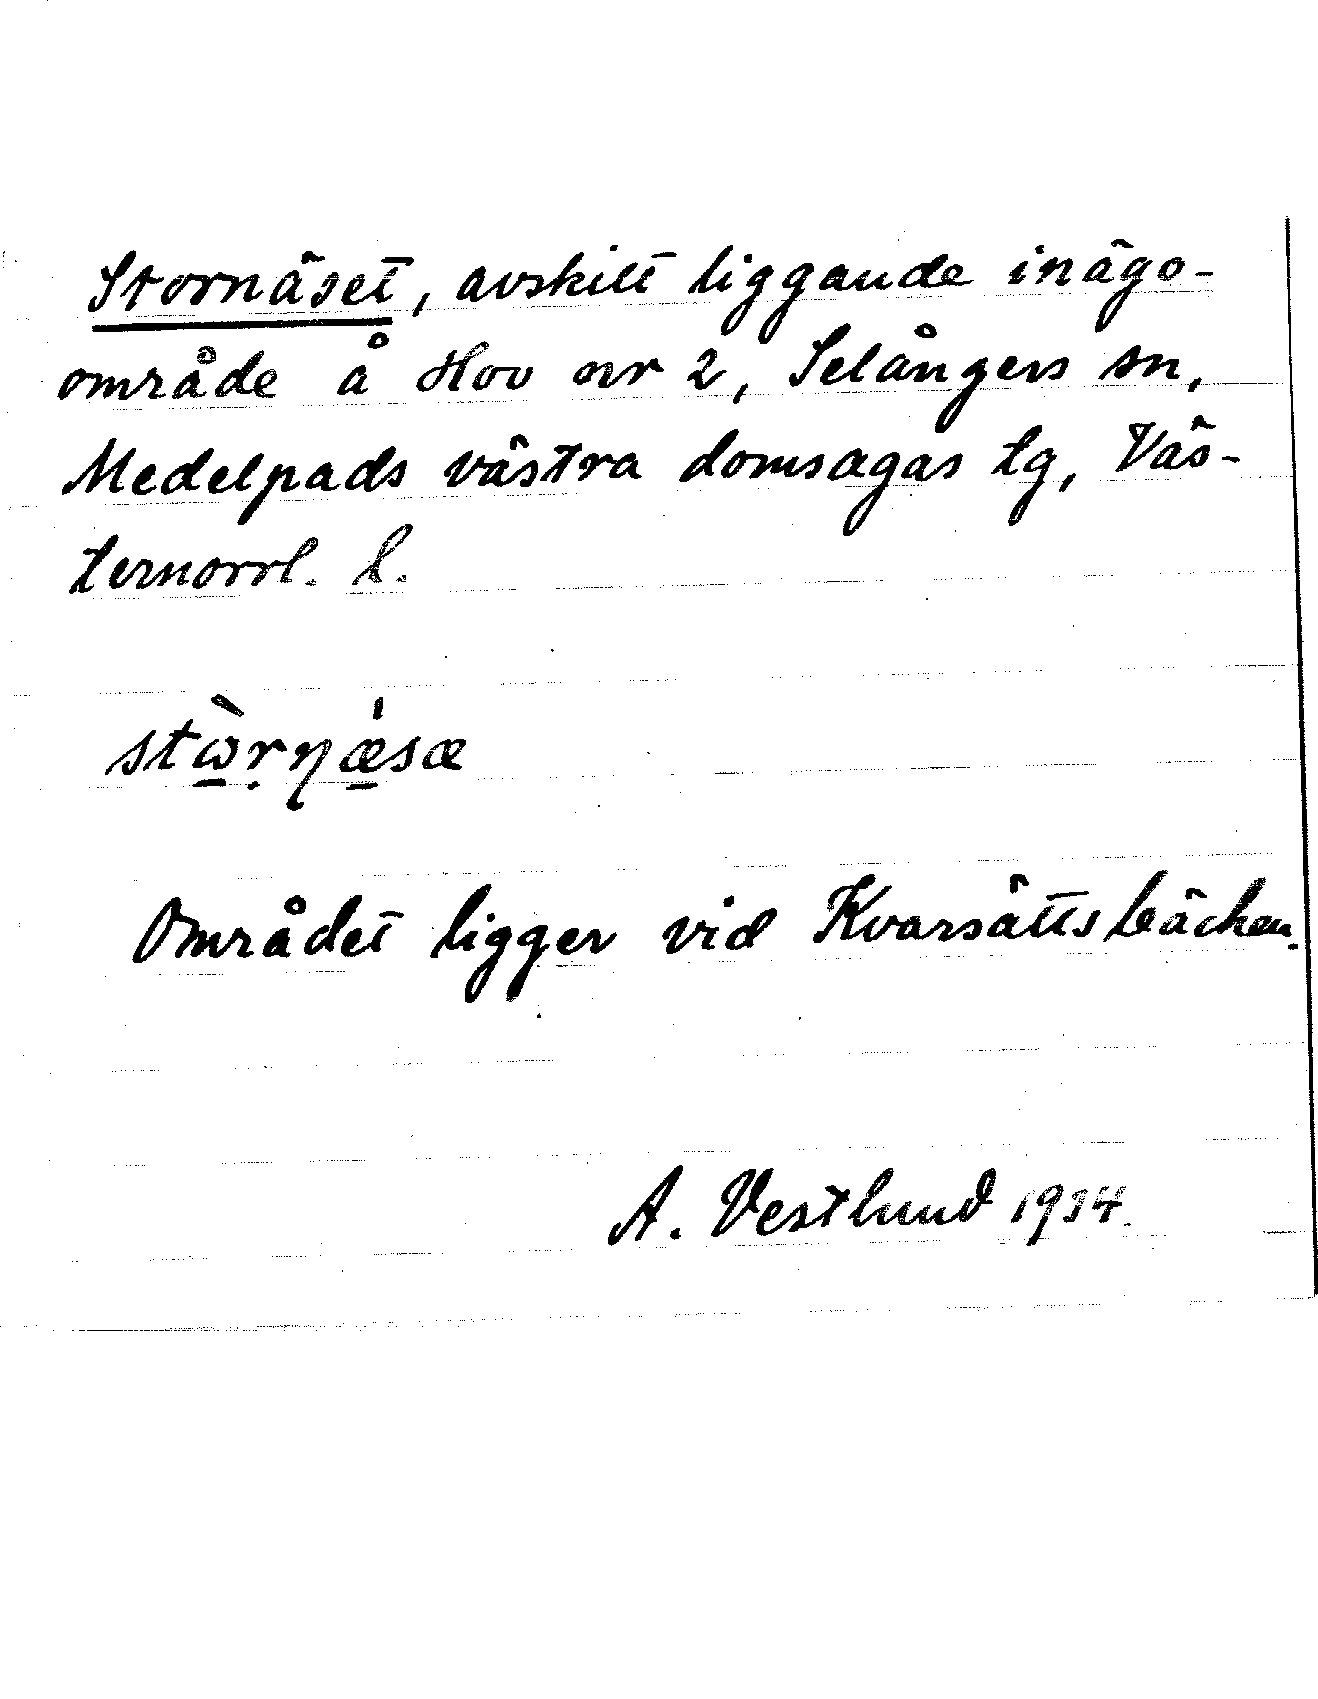 Stornäset, avskilt liggande inägo-
område å Hov nr 2, Selångers sn,
Medelpads västra domsagas tg, Väs-
ternorrl. l.
stὼ̲ṛηǽ̲sæ
Området ligger vid Kvarsättsbäcken.
A. Vestlund 1934.